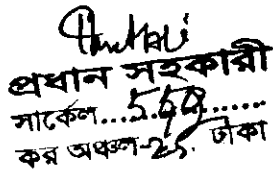 প্রধান সহকারী
সার্কেল...........
কর অঞ্চল-২৫, ঢাকা